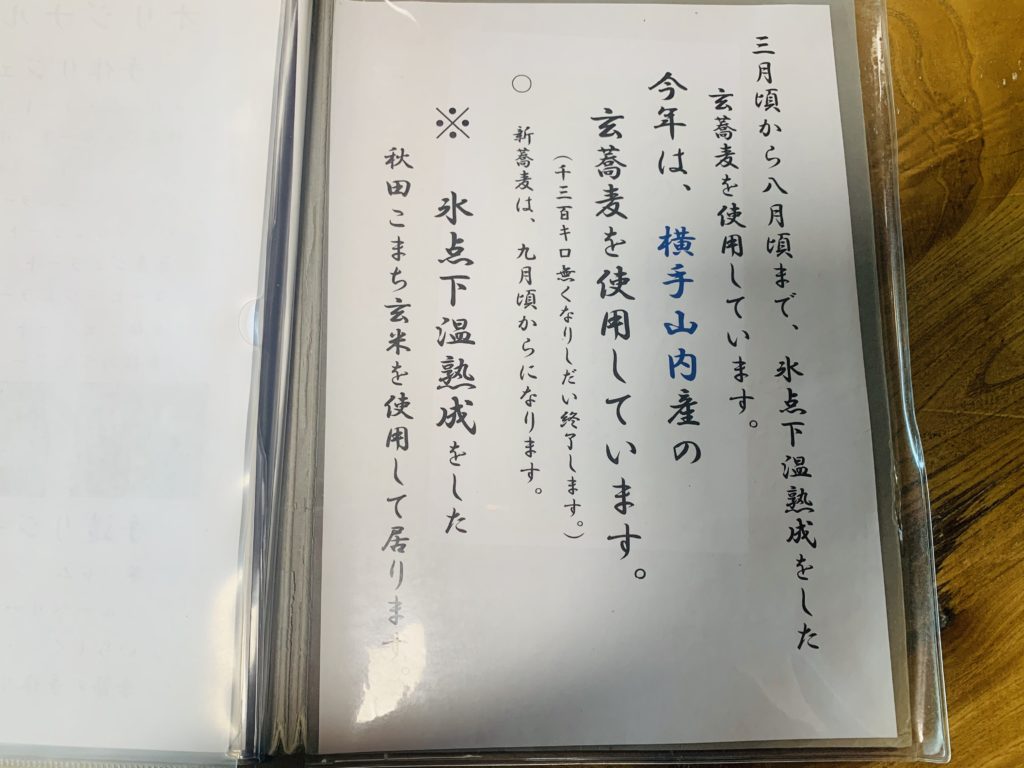 三月頃から八月頃まで、氷点下温熟成をした
玄蕎麦を使用しています。
今年は、横手山内産の
玄蕎麦を使用しています。
(千三百キロ無くなりしだい終了します。)
○ 新蕎麦は、九月頃からになります。
※ 氷点下温熟成をした
秋田こまち玄米を使用して居ります。